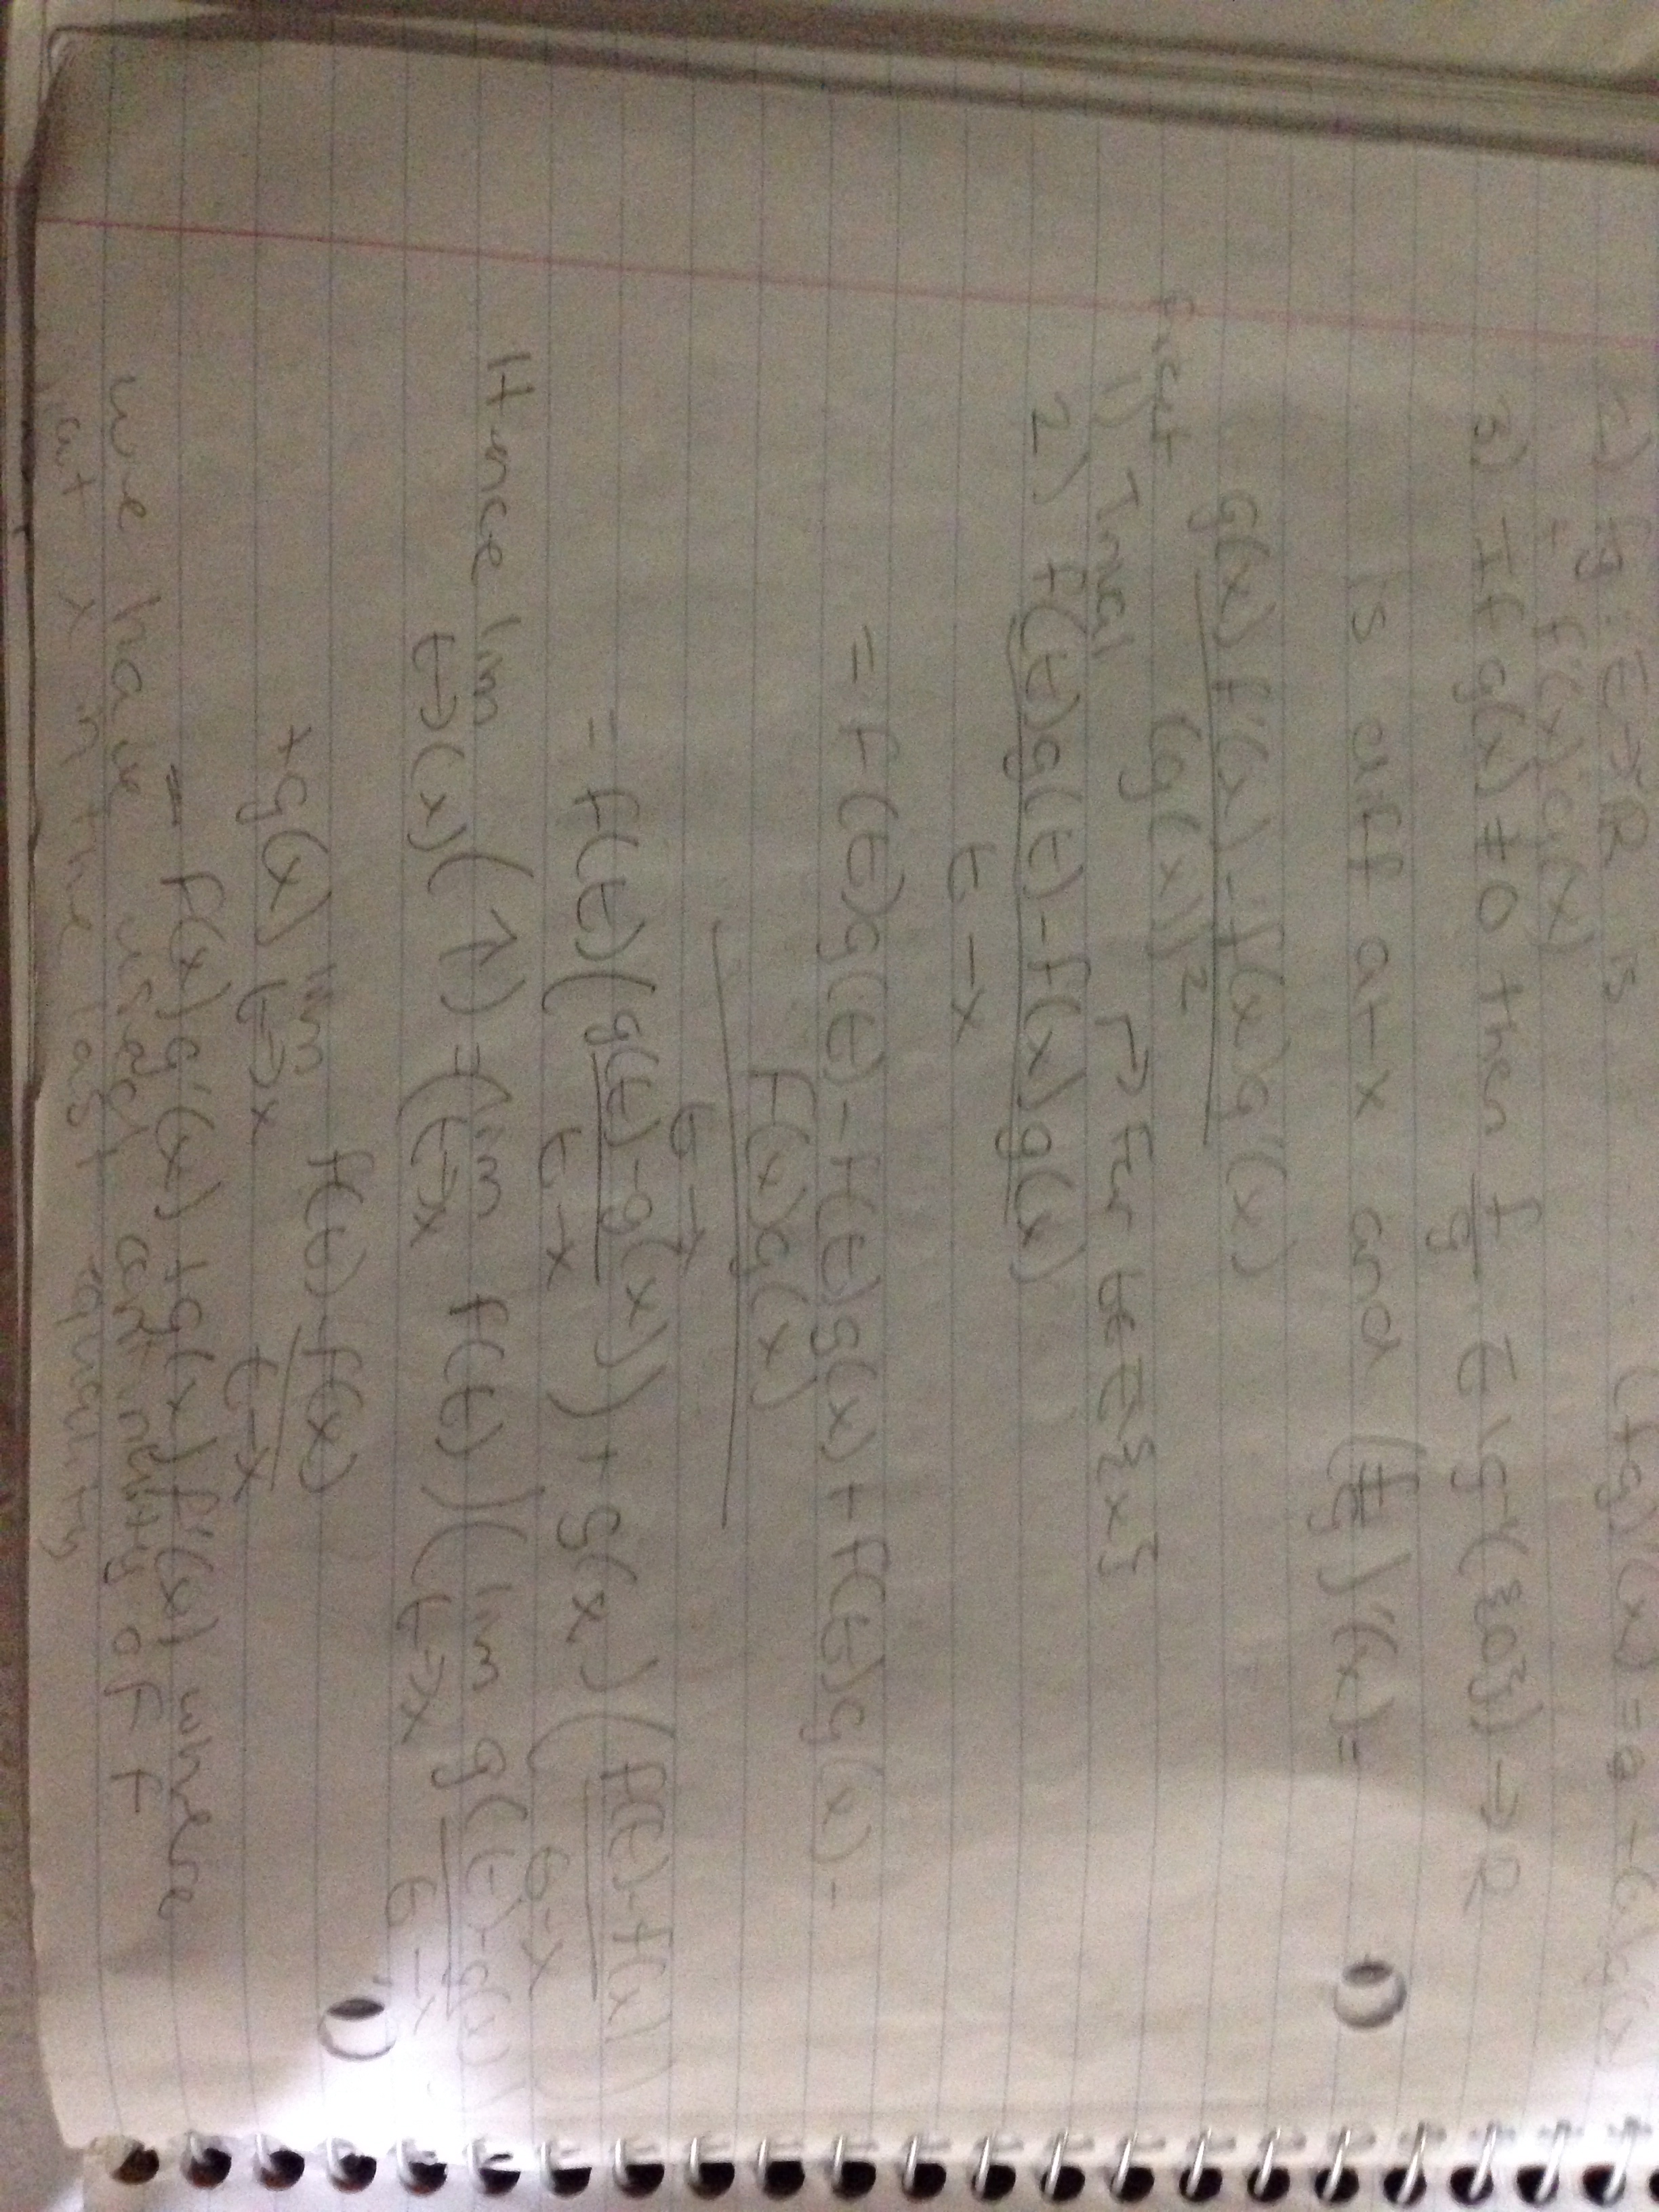 2) fg: E→R is (fg)'(x) = 
+ f'(x)g(x)
3) If g(x) ≠ 0 then f/g E\g⁻¹({0}) → R
is diff at x and (f/g)'(x) =
g(x)f'(x) - f(x)g'(x)
(g(x))²
Proof
1) Trivial
2) For t∈E\{x}
f(t)g(t) - f(x)g(x)
t - x
= f(t)g(t) - f(t)g(x) + f(t)g(x) -
f(x)g(x)
t - x
= f(t)(g(t) - g(x)/t - x) + g(x)(f(t) - f(x)/t - x)
Hence lim t→(x) (↑) = (lim t→x f(t))(lim t→x g(t) - g(x)/t - x)
+ g(x) lim t→x f(t) - f(x)/t - x
= f(x)g'(x) + g(x)f'(x) where
we have used continuity of f
at x in the last equality